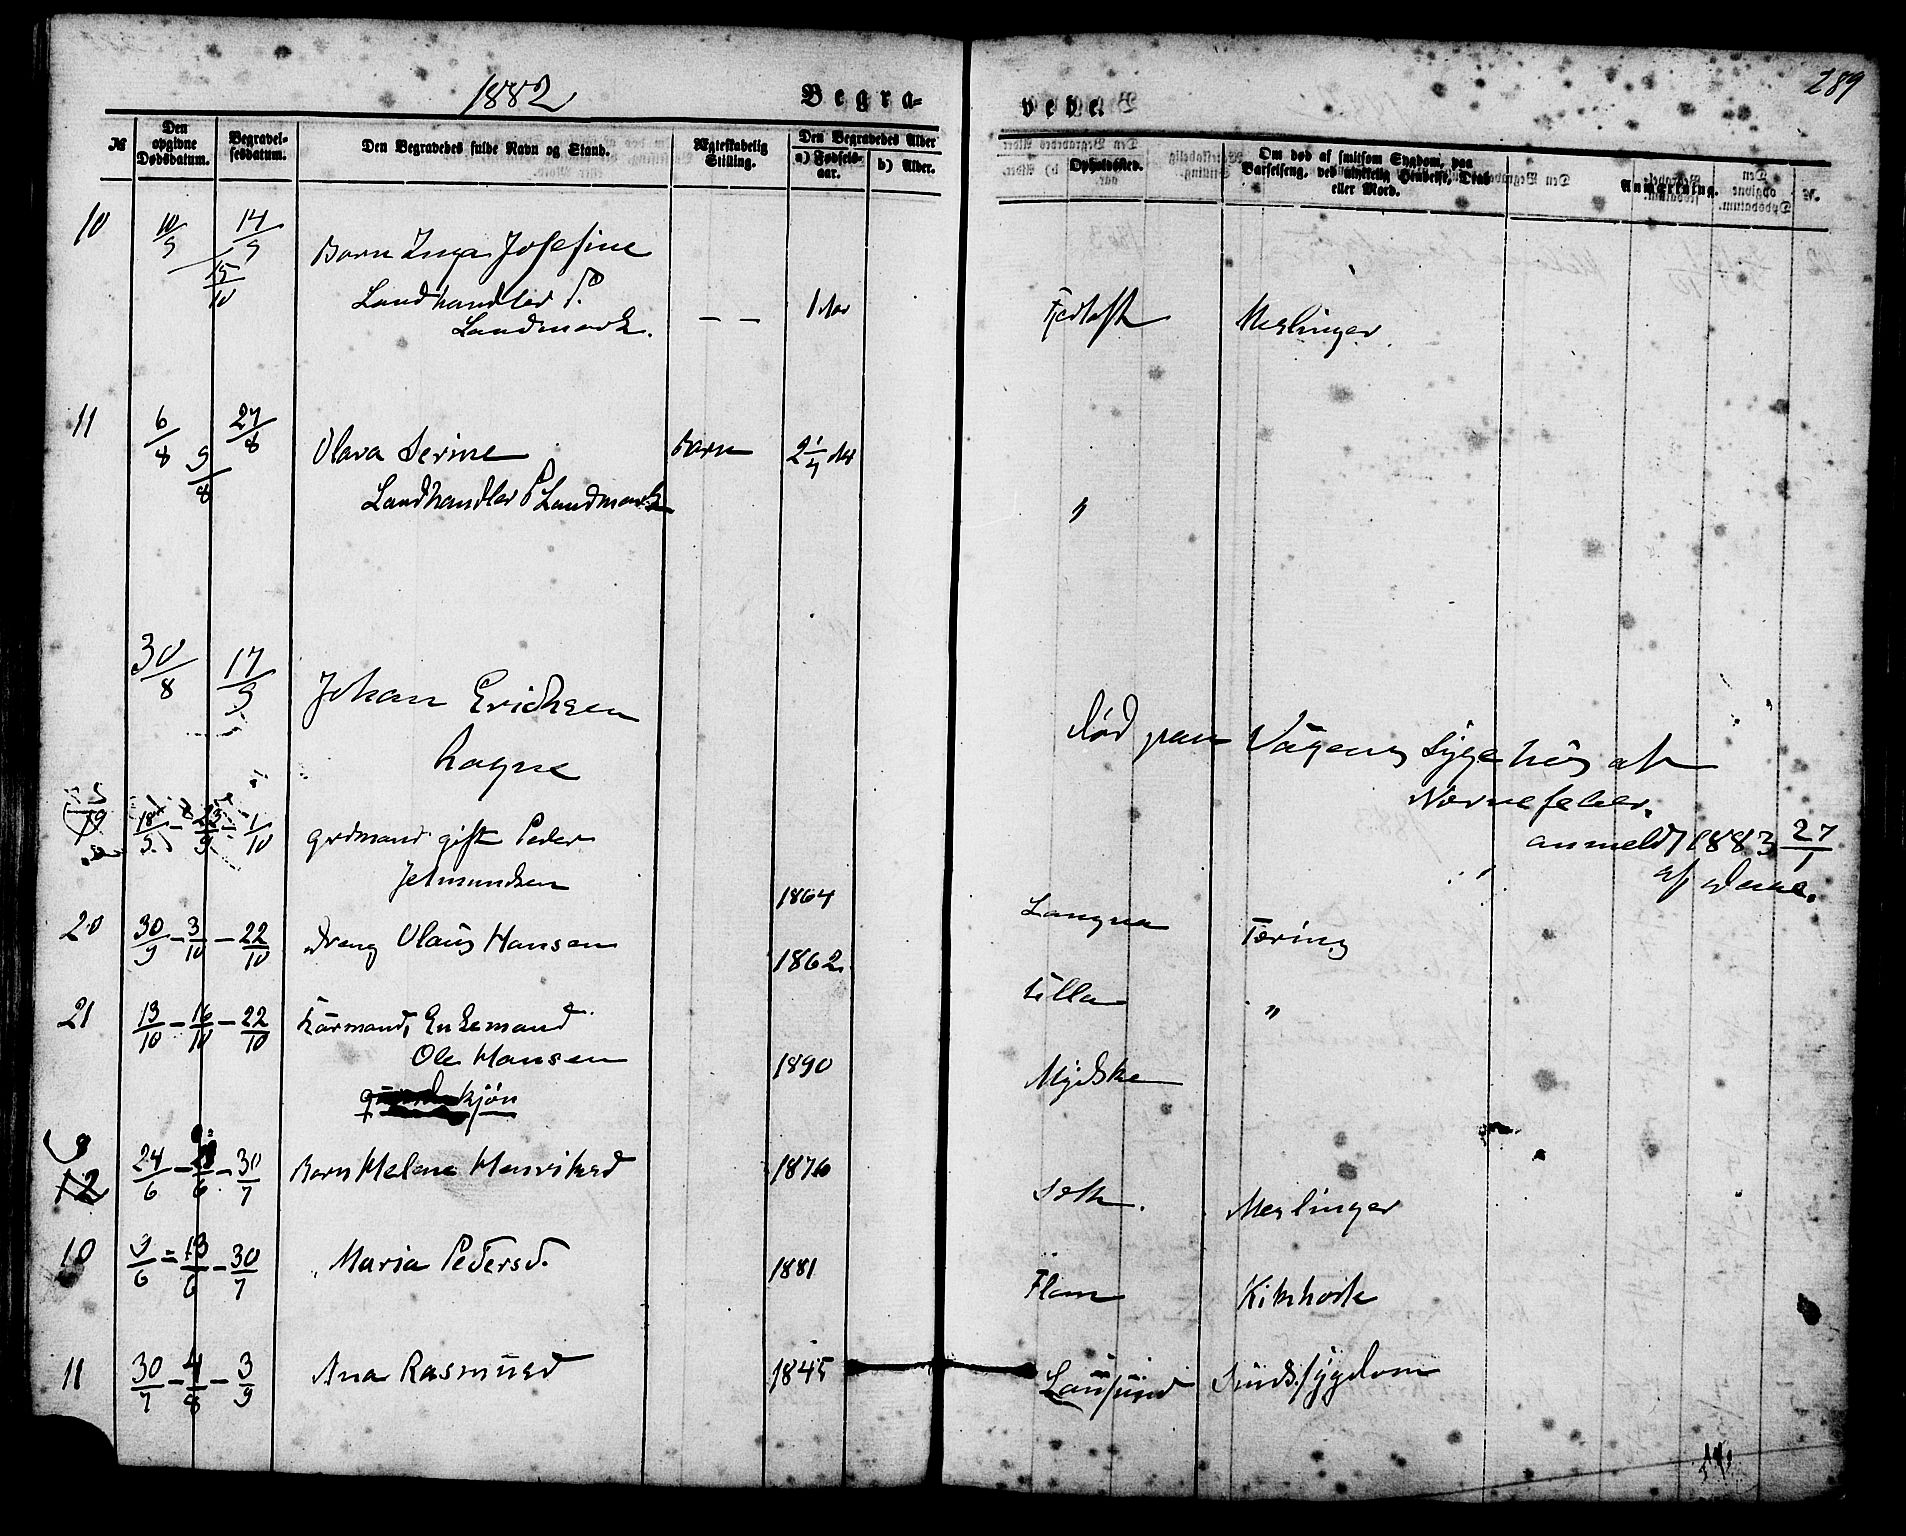 289
1882
Begra-
vede.
№
Den opgivne Dødsdatum.
Begravel-sesdatum.
Den Begravedes fulde Navn og Stand.
Ægteskabelig Stilling.
Den Begravedes Alder
a) Fødsels-aar.
b) Alder.
Opholdssted.
Om død af smitsom Sygdom, paa Barselseng, ved ulykkelig Hændelse, Drab eller Mord.
Anmærkning.
10 10/9 14/9 Barn Inga Josefine
15/10
Landhandler P. 1 Aar Fjærtoft Meslinger
Landmark.
11 6/8 27/8 Olava Serine Barn 2 1/4 Aar
9/8
Landhandler P Landmark "
30/8 17/9 Johan Erichsen
Død paa Vågens Sygehus af
Nervefeber.
anmeldt 1883 27/1
19 18/9 - 23/9 - 1/10 Grdmand gift Peder
Jetmundsen 1864 Longva Tæring
20 30/9 - 3/10 - 22/10 Dreng Olaus Hansen 1862 Ulla "
21 13/10 - 16/10 - 22/10 Kårmand, Enkemand
Ole Hansen 1890 Mydske
qvindekjøn
9
12 24/6 - 28/6 - 30/7 Barn Helene Henriksd 1876 Meslinger
10 9/6 = 13/6 - 30/7 Maria Pedersd. 1881 Flem Kikhoste
11 30/7 - 4/8 - 3/9 Ana Rasmusd 1845 Lausund Sindssygdom